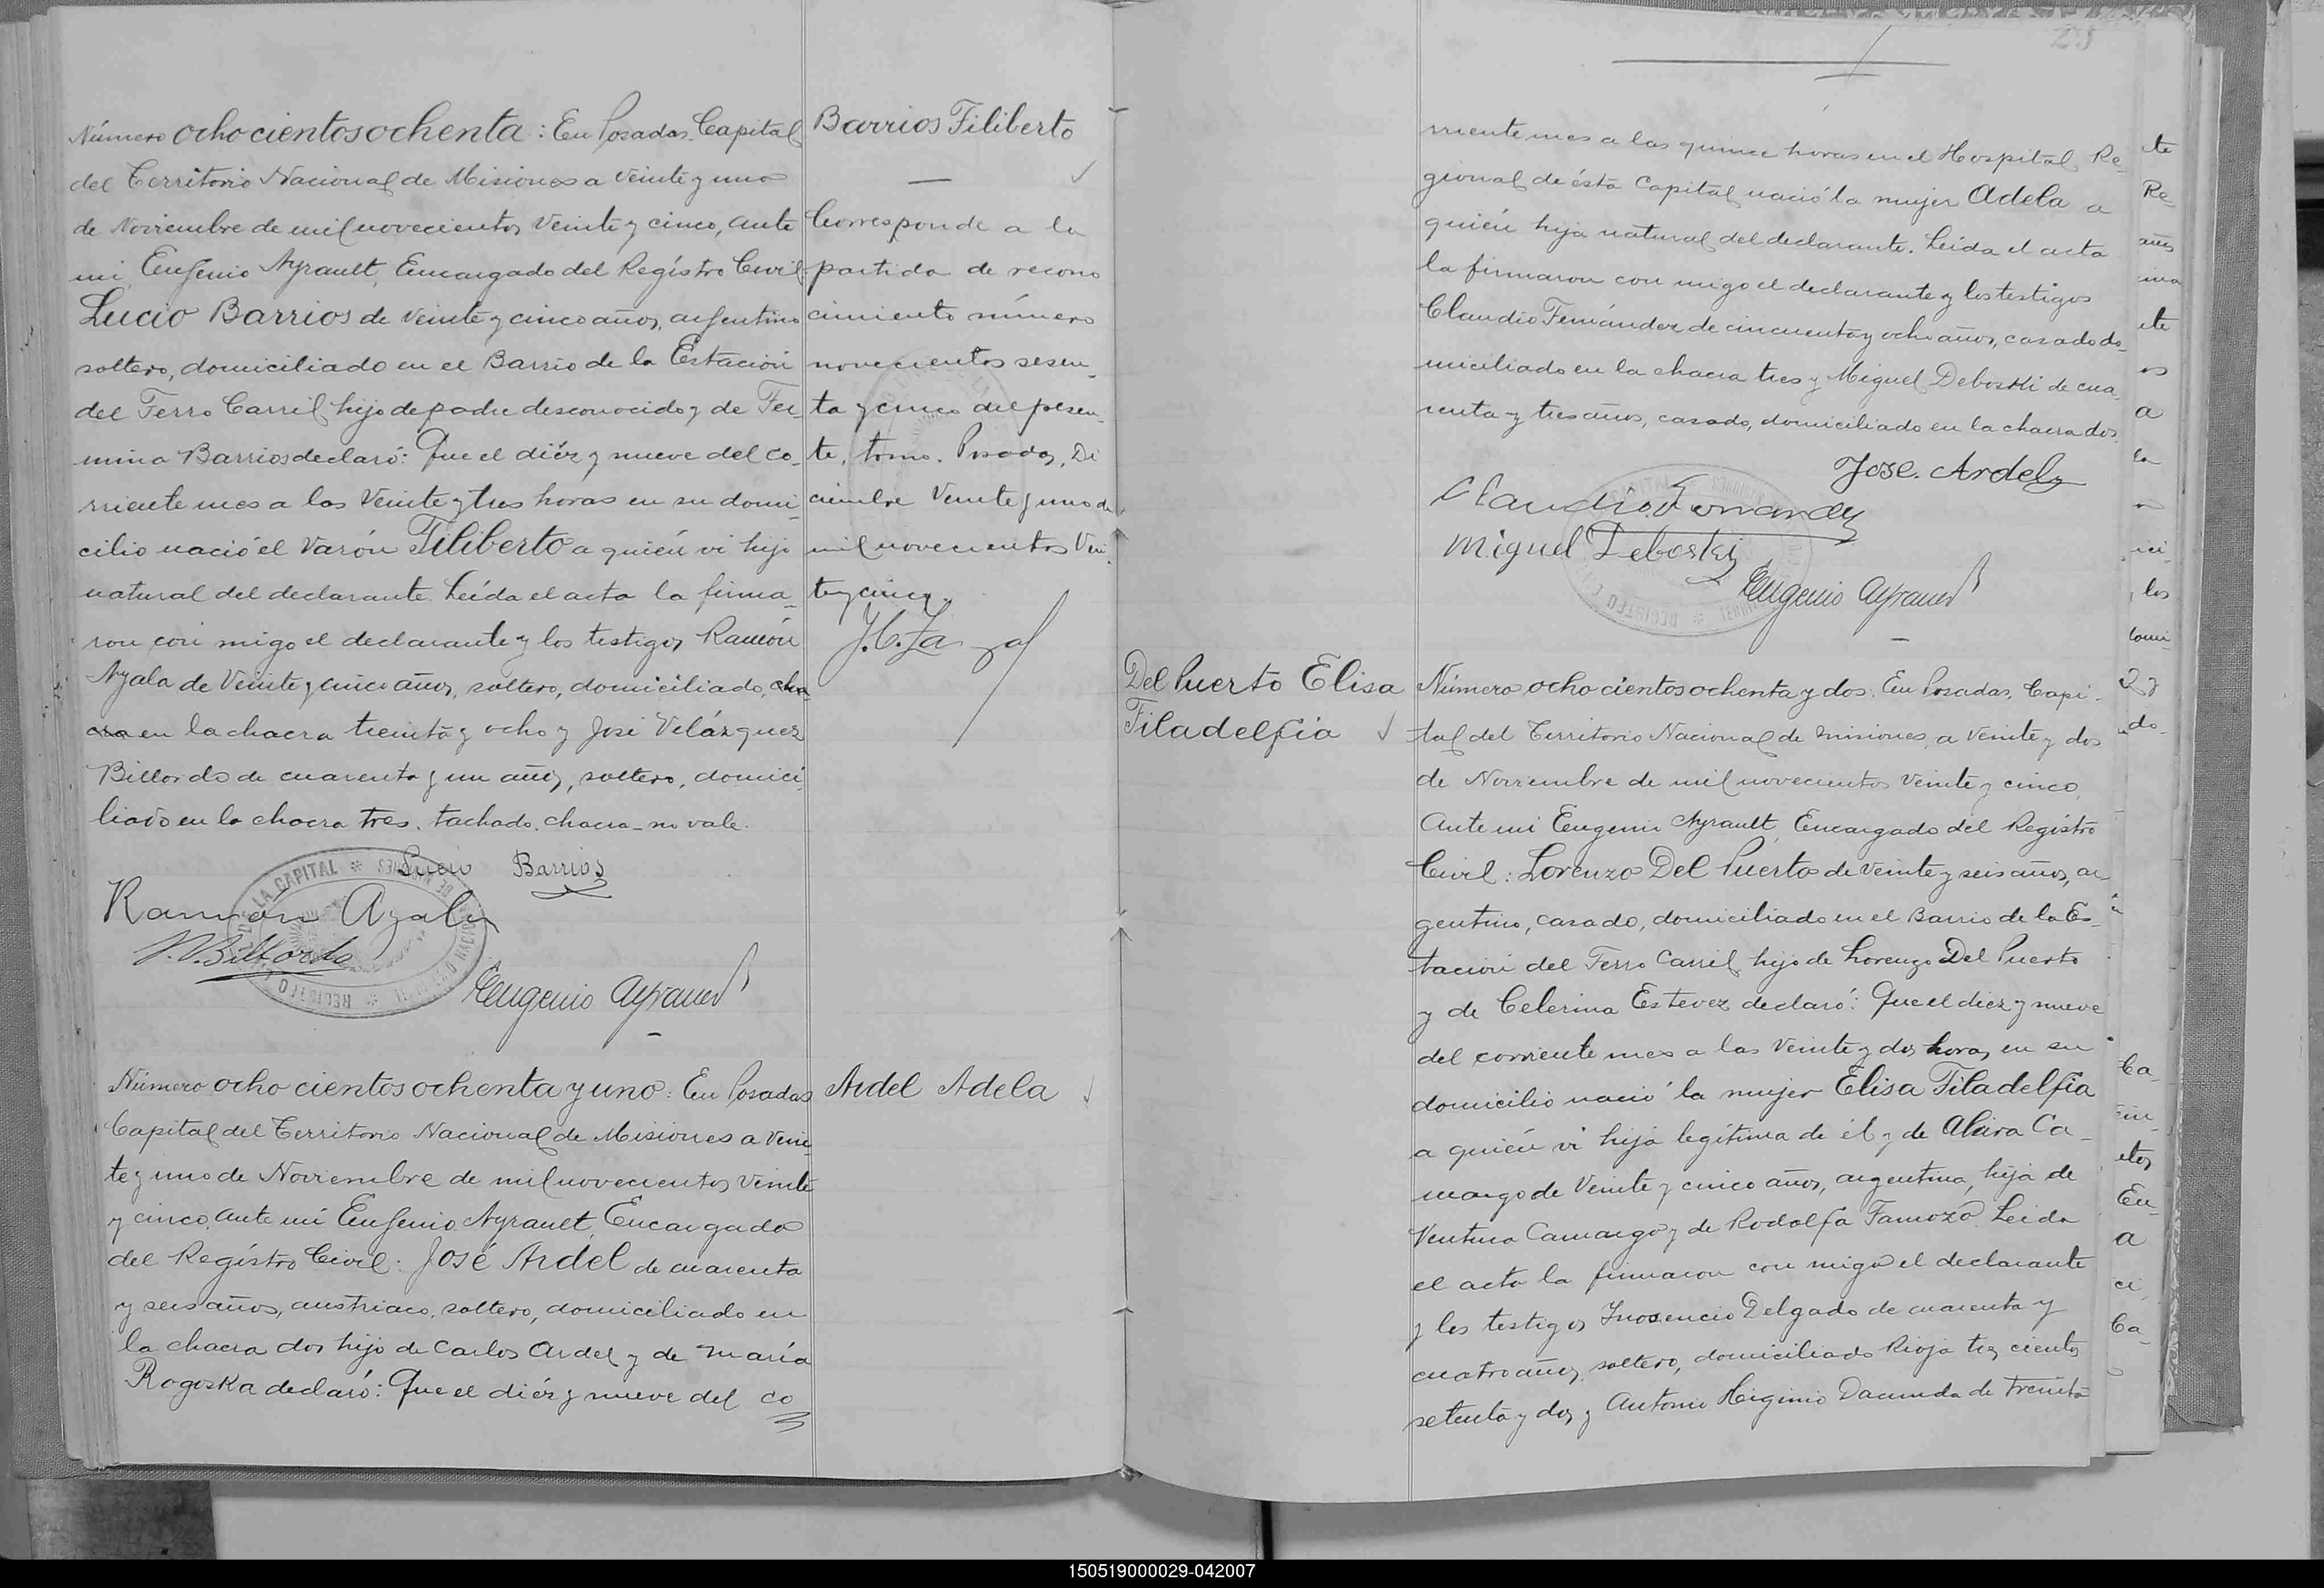 Número ochocientos ochenta: En Posadas, Capital
del Territorio Nacional de Misiones a veinte y uno
de Noviembre de mil novecientos veinte y cinco, ante
mi, Eugenio Ayrault, Encargado del Registro Civil
Lucio Barrios de veinte y cinco años, argentino
soltero, domiciliado en el Barrio de la Estación
del Ferro Carril hijo de padre desconocido y de Fer-
mina Barrios declaró: Que el diéz y nueve del co-
rriente mes a las veinte y tres horas en su domi-
cilio nació el varón Filiberto a quién vi hijo
natural del declarante. Leída el acta la firma-
ron con migo el declarante y los testigos Ramón
Ayala de veinte y cinco años, soltero, domiciliado, cha
cra en la chacra treinta y ocho y José Velázquez
Billordo de cuarenta y un años, soltero, domici-
liado en la chacra tres. tachado. chacra - no vale.
Lucio Barrios
Ramon Ayala
V. Billordo
Eugenio Ayrault
Barrios Filiberto
Corresponde a la
partida de recono
cimiento número
novecientos sesen-
ta y cinco del presen-
te, tomo. Posadas, Di
ciembre veinte y uno de
mil novecientos vein
te y cinco.
Número ochocientos ochenta y uno: En Posadas
Capital del Territorio Nacional de Misiones a vein-
te y uno de Noviembre de mil novecientos veinte
y cinco, ante mi Eugenio Ayrault, Encargado
del Registro Civil: José Ardel de cuarenta
y seis años, austriaco, soltero, domiciliado en
la chacra dos hijo de Carlos Ardel y de María
Rogoska declaró: Que el diéz y nueve del co
Ardel Adela
rriente mes a las quince horas en el Hospital Re-
gional de ésta Capital nació la mujer Adela a
quién hija natural del declarante. Leída el acta
la firmaron con migo el declarante y los testigos
Claudio Fernández de cincuenta y ocho años, casado do-
miciliado en la chacra tres y Miguel Deboski de cua-
renta y tres años, casado, domiciliado en la chacra dos.
Jose. Ardel
Claudio Fernandez
Miguel Deboski
Eugenio Ayrault
Del Puerto Elisa
Filadelfia
Número ochocientos ochenta y dos. En Posadas, Capi-
tal del Territorio Nacional de Misiones, a veinte y dos
de Noviembre de mil novecientos veinte y cinco,
Ante mi Eugenio Ayrault, Encargado del Registro
Civil: Lorenzo Del Puerto de veinte y seis años, ar-
gentino, casado, domiciliado en el Barrio de la Es-
tación del Ferro Carril, hijo de Lorenzo Del Puerto
y de Celerina Estevez declaró: Que el diez y nueve
del corriente mes a las veinte y dos horas, en su
domicilio nació la mujer Elisa Filadelfia
a quién vi hija legítima de él y de Alcira Ca-
margo de veinte y cinco años, argentina, hija de
Ventura Camargo y de Rodolfa Famozo. Leída
el acta la firmaron con migo el declarante
y los testigos Inosencio Delgado de cuarenta y
cuatro años, soltero, domiciliado Rioja tres cientos
setenta y dos y Antonio Higinio Dacunda de treinta
150519000029-042007